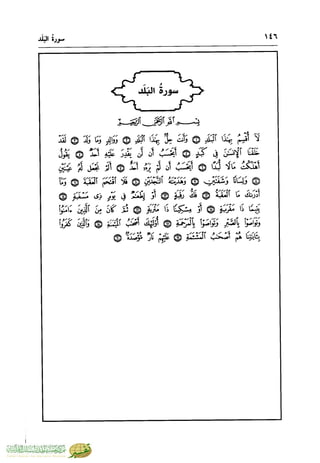 سورة البلد ١٤٦
سورة البلد
بسم الله الرحمن الرحيم
لَا أُقْسِمُ بِهَٰذَا الْبَلَدِ ١ وَأَنتَ حِلٌّ بِهَٰذَا الْبَلَدِ ٢ وَوَالِدٍ وَمَا وَلَدَ ٣ لَقَدْ
خَلَقْنَا الْإِنسَٰنَ فِي كَبَدٍ ٤ أَيَحْسَبُ أَن لَّن يَقْدِرَ عَلَيْهِ أَحَدٌ ٥ يَقُولُ
أَهْلَكْتُ مَالًا لُّبَدًا ٦ أَيَحْسَبُ أَن لَّمْ يَرَهُ أَحَدٌ ٧ أَلَمْ نَجْعَل لَّهُ عَيْنَيْنِ
٨ وَلِسَانًا وَشَفَتَيْنِ ٩ وَهَدَيْنَٰهُ النَّجْدَيْنِ ١٠ فَلَا اقْتَحَمَ الْعَقَبَةَ ١١ وَمَا
أَدْرَىٰكَ مَا الْعَقَبَةُ ١٢ فَكُّ رَقَبَةٍ ١٣ أَوْ إِطْعَٰمٌ فِي يَوْمٍ ذِي مَسْغَبَةٍ ١٤
يَتِيمًا ذَا مَقْرَبَةٍ ١٥ أَوْ مِسْكِينًا ذَا مَتْرَبَةٍ ١٦ ثُمَّ كَانَ مِنَ الَّذِينَ ءَامَنُوا
وَتَوَاصَوْا بِالصَّبْرِ وَتَوَاصَوْا بِالْمَرْحَمَةِ ١٧ أُولَٰئِكَ أَصْحَٰبُ الْمَيْمَنَةِ ١٨ وَالَّذِينَ كَفَرُوا
بِـَٔايَٰتِنَا هُمْ أَصْحَٰبُ الْمَشْـَٔمَةِ ١٩ عَلَيْهِمْ نَارٌ مُّؤْصَدَةٌ ٢٠